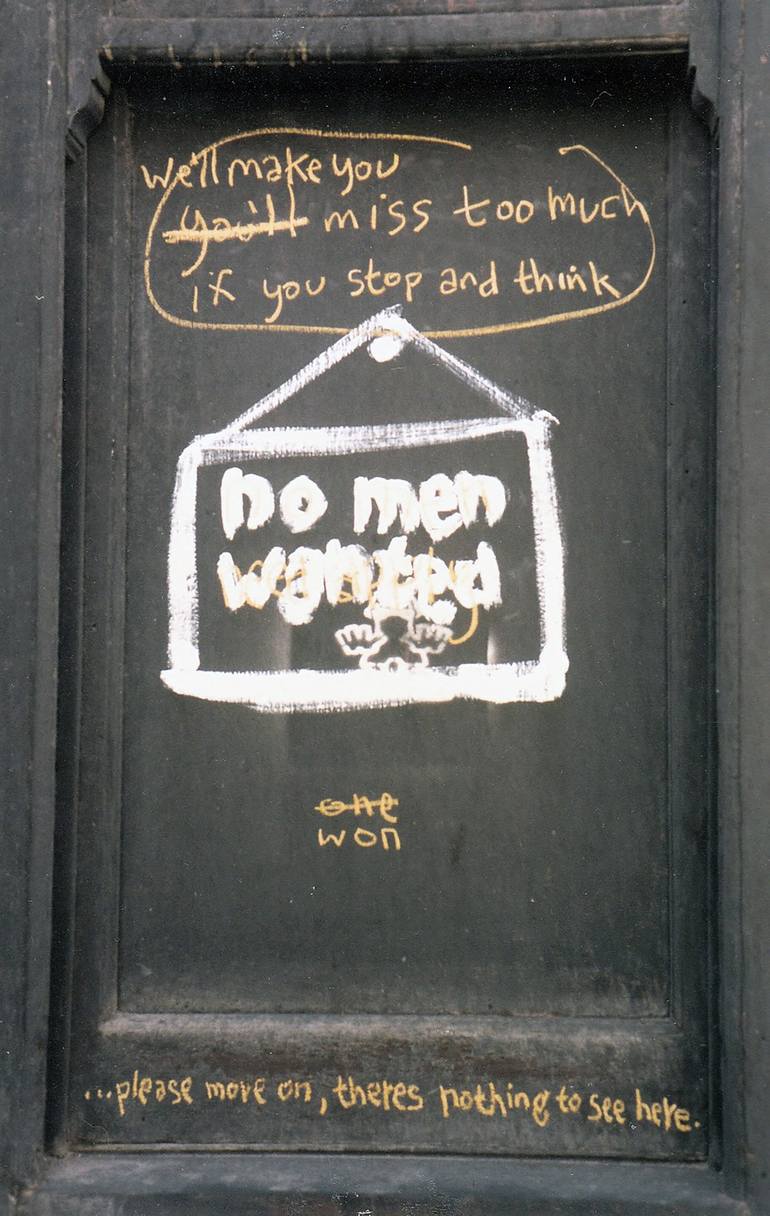 We'll make you
you'll miss too much
if you stop and think
no men
wanted
one
won
...please move on, theres nothing to see here.